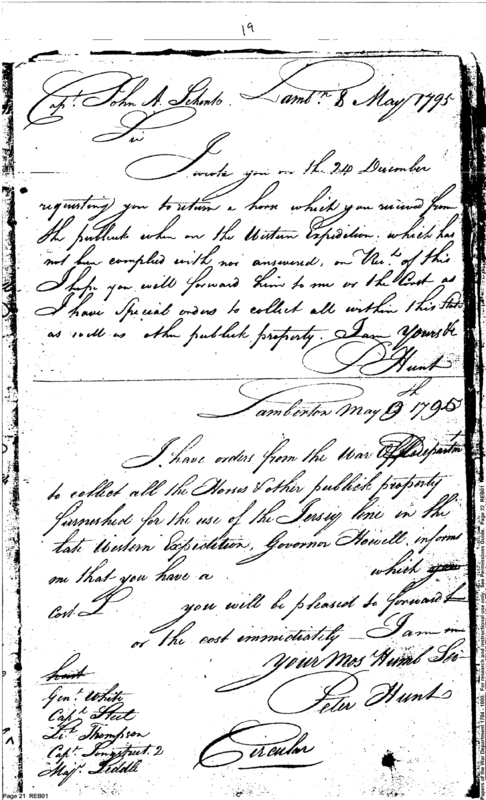 19
Capt. John A. Schenk. Lambn. 8 May 1795
Sir
I wrote you on th. 24 December
requesting you to return a horse which you recived from
the publick when on the Western Expedition. which has
not been complied with nor answered, on Rect. of this
I hope you will forward him to me or the Cost as
I have Special orders to collect all within this State
as well as other publick property. I am yours &c
P Hunt
Lamberton May 9th 1795
I have orders from the War Departmt
to collect all the Horses & other publick property
furnished for the use of the Jersey line in the
late Western Expedition, Governor Howell, informs
me that you have a which you
Cost £ you will be pleased to forward
or the cost immediately — I am
your Mos Humb Ser
Peter Hunt
Genl. White
Capt. Steel
Lt. Thompson
Capt. Longstreet. 2
Majr. Liddle
Circular
Page 21 REB01